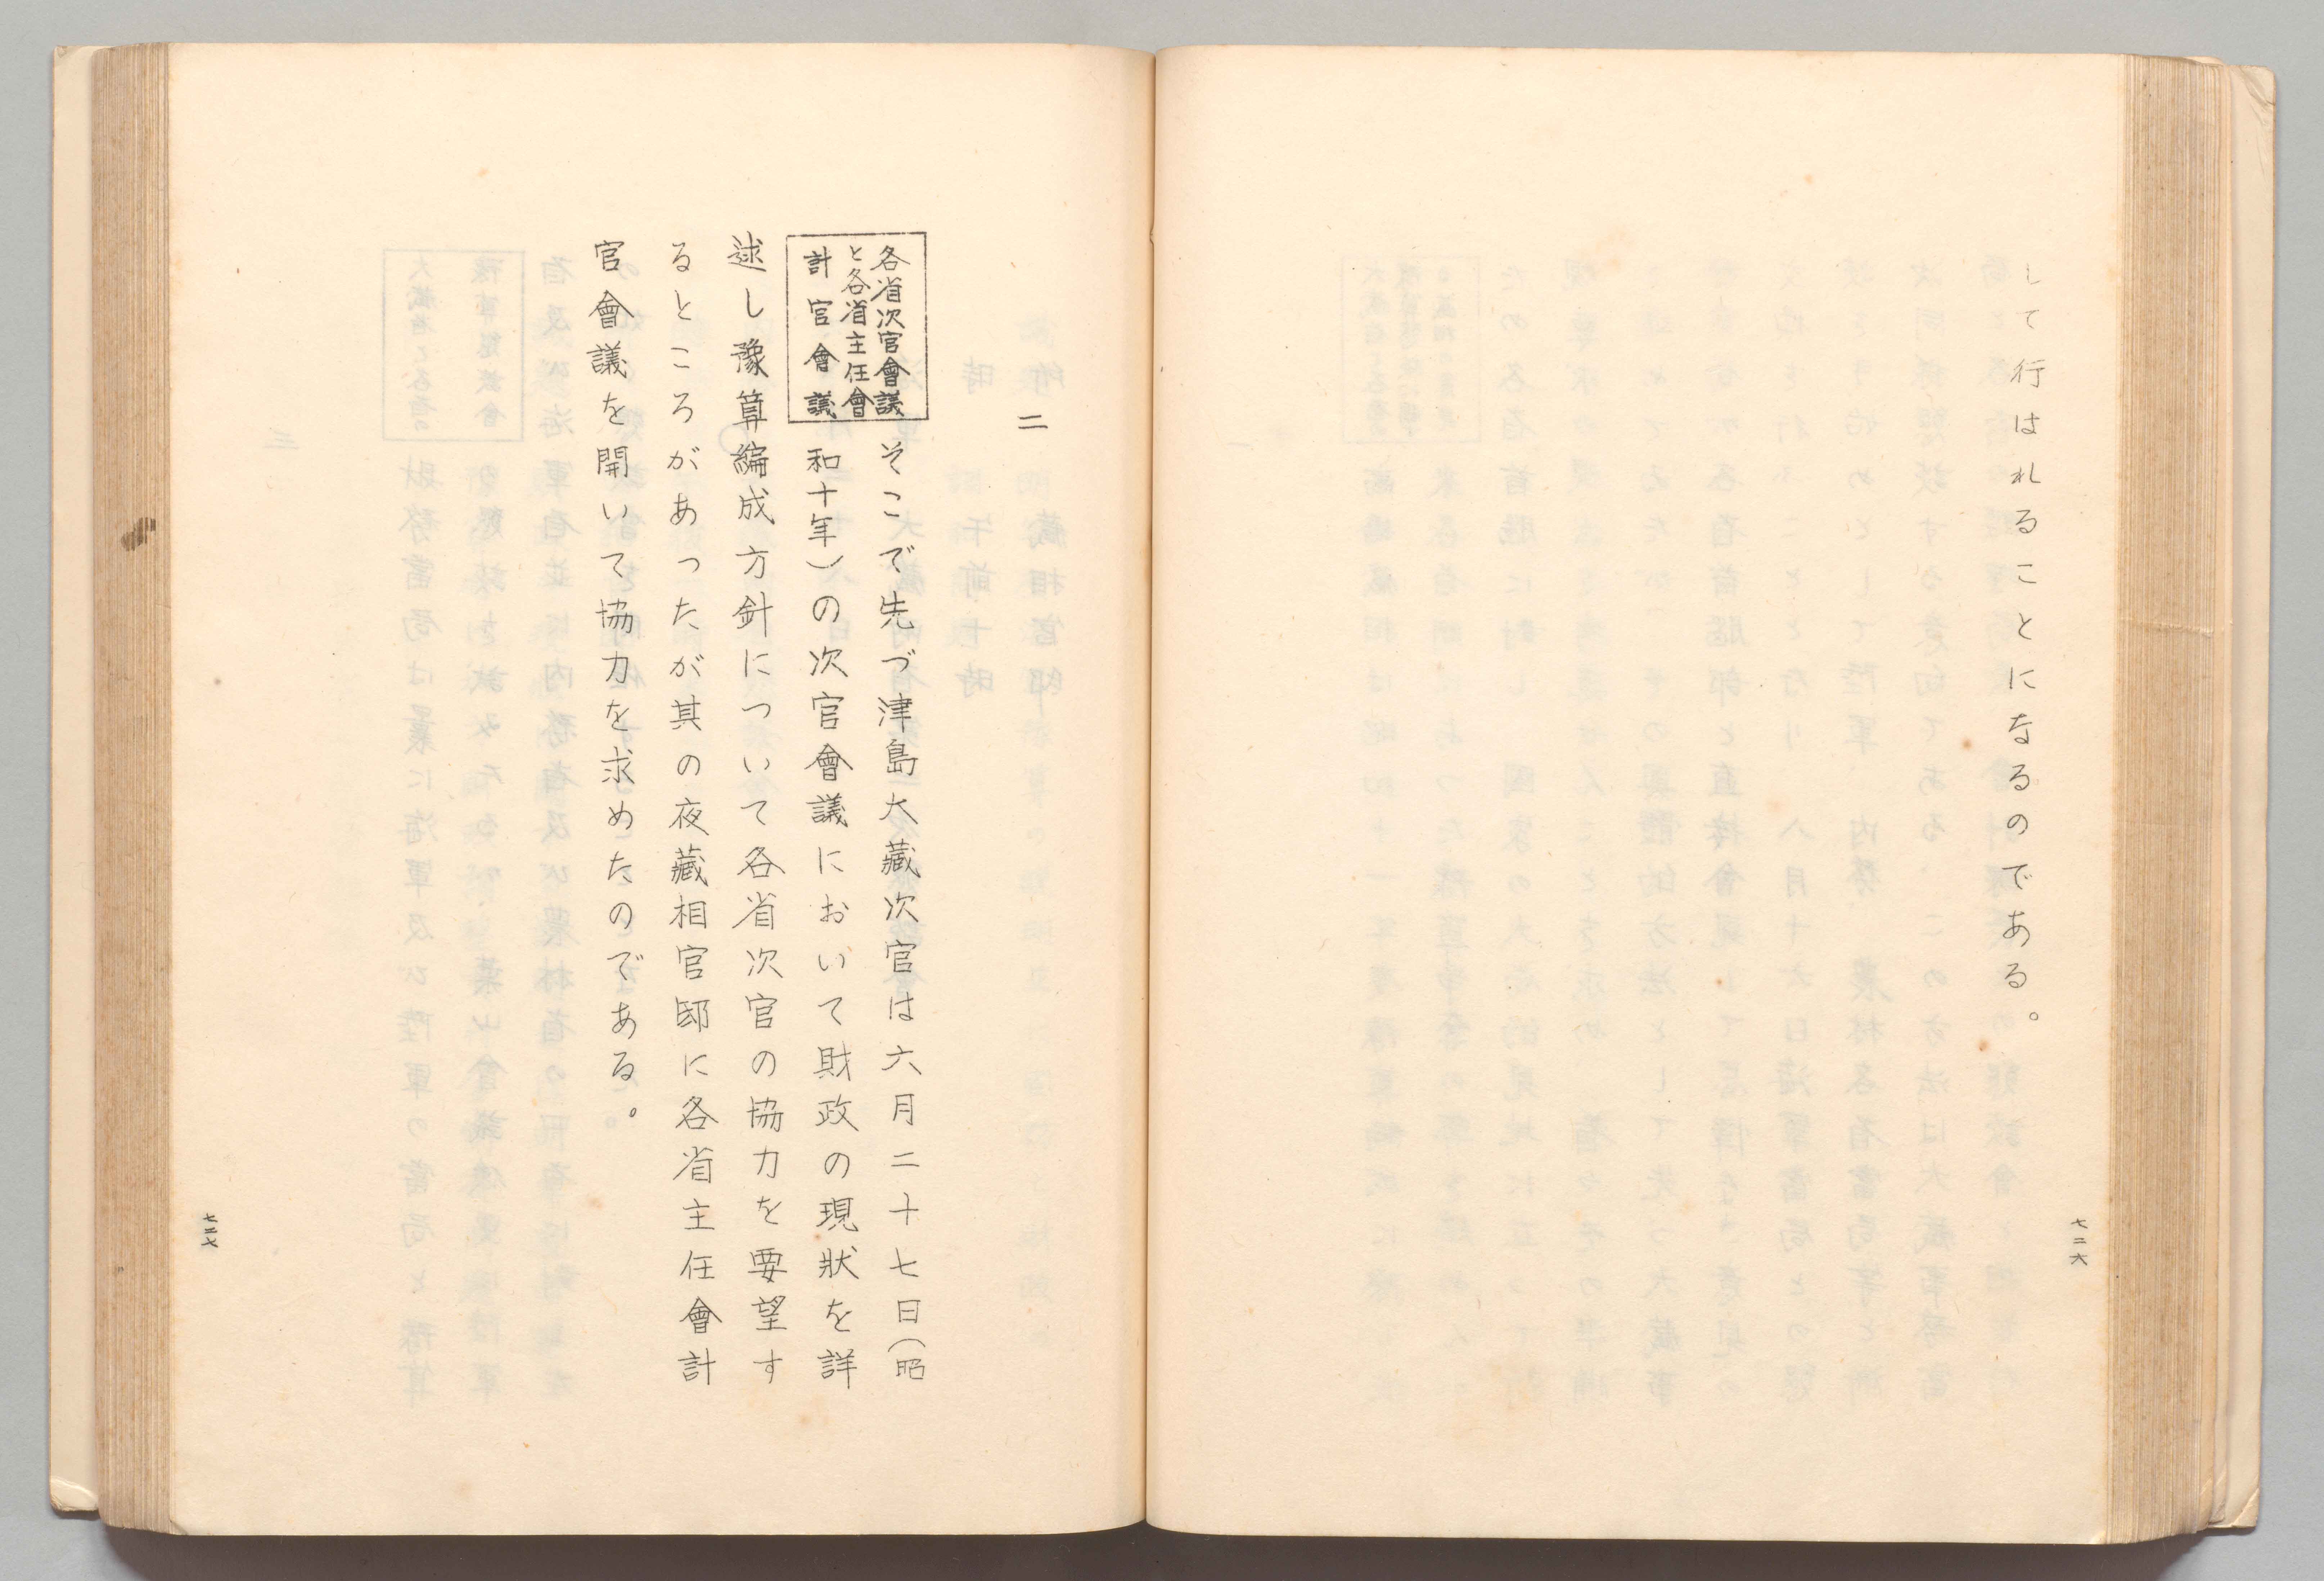 して行はれることになるのである。
七二六
二
各省次官會議
と各省主任會
計官會議
そこで先づ津島大藏次官は六月二十七日(昭
和十年)の次官會議において財政の現狀を詳
述し豫算編成方針について各省次官の協力を要望す
るところがあったが其の夜藏相官邸に各省主任會計
官會議を開いて協力を求めたのである。
七二七